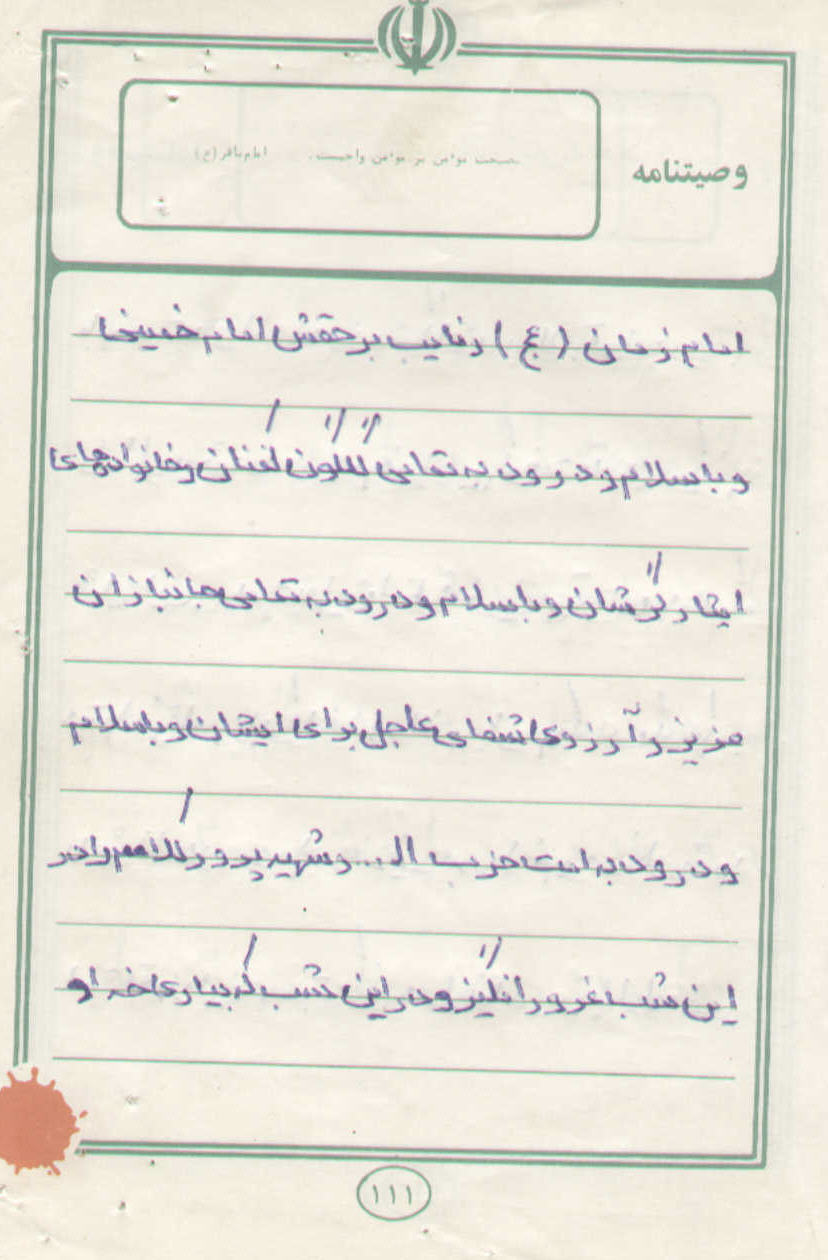 وصیتنامه
نصیحت مؤمن بر مؤمن واجبست. امام باقر (ع)
امام زمان (عج) و نایب برحقش امام خمینی
و با سلام و درود به تمامی گلگون کفنان و خانوادههای
ایثارگرشان و با سلام و درود به تمامی جانبازان
عزیز و آرزوی شفای عاجل برای ایشان و با سلام
و درود به امت حزب ال... و شهید پرور کلامم را در
این شب غرورانگیز و در این شب که بیاری خدا و
۱۱۱